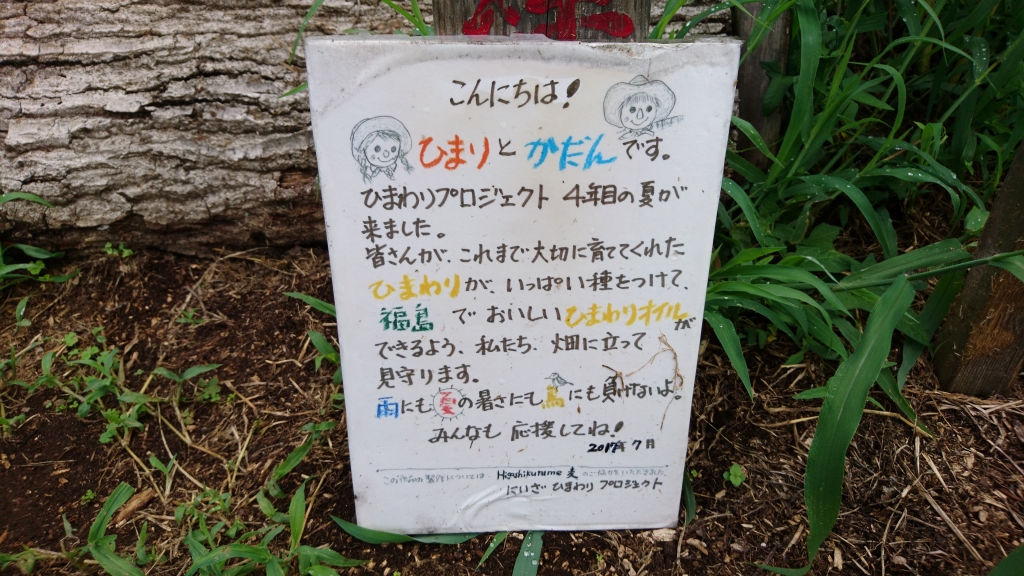 こんにちは!
ひまりとかだんです。
ひまわりプロジェクト 4年目の夏が
来ました。
皆さんが、これまで大切に育ててくれた
ひまわりが、いっぱい種をつけて、
福島でおいしいひまわりオイルが
できるよう、私たち、畑に立って
見守ります。
雨にも夏の暑さにも鳥にも負けないよ。
みんなも応援してね!
2017年7月
この作品の製作については Higashikurume 麦 のご協力をいただきました
にいざ ひまわり プロジェクト